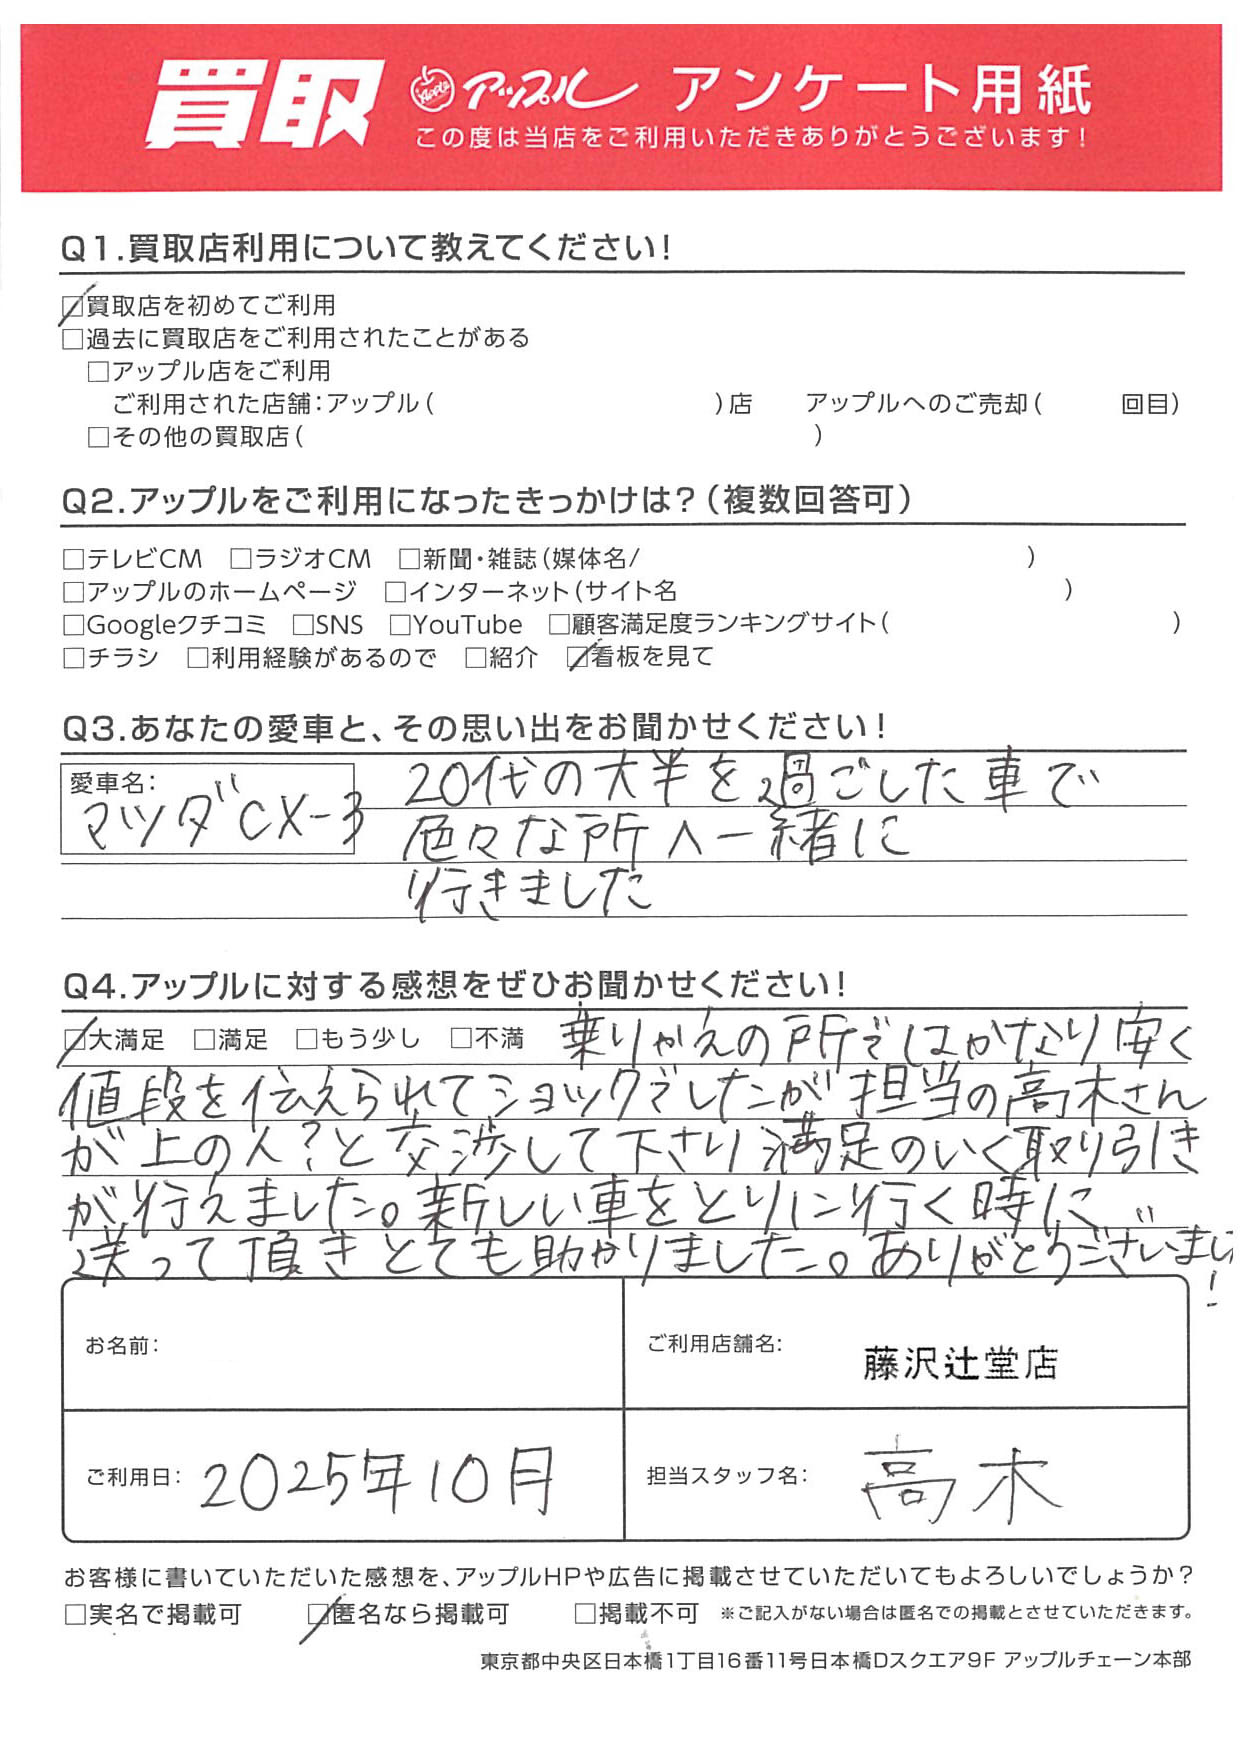 買取 Apple アップル アンケート用紙
この度は当店をご利用いただきありがとうございます!
Q1.買取店利用について教えてください!
☑買取店を初めてご利用
□過去に買取店をご利用されたことがある
□アップル店をご利用
ご利用された店舗:アップル( )店 アップルへのご売却( 回目)
□その他の買取店( )
Q2.アップルをご利用になったきっかけは?(複数回答可)
□テレビCM □ラジオCM □新聞・雑誌(媒体名/ )
□アップルのホームページ □インターネット(サイト名 )
□Googleクチコミ □SNS □YouTube □顧客満足度ランキングサイト( )
□チラシ □利用経験があるので □紹介 ☑看板を見て
Q3.あなたの愛車と、その思い出をお聞かせください!
愛車名:
マツダCX-3
20代の大半を過ごした車で
色々な所へ一緒に
行きました
Q4.アップルに対する感想をぜひお聞かせください!
☑大満足 □満足 □もう少し □不満 乗りかえの所ではかなり安く
値段を伝えられてショックでしたが担当の高木さん
が上の人?と交渉して下さり満足のいく取り引き
が行えました。新しい車をとりに行く時に
送って頂きとても助かりました。ありがとうございまし
!
お名前:
ご利用店舗名: 藤沢辻堂店
ご利用日: 2025年10月
担当スタッフ名: 高木
お客様に書いていただいた感想を、アップルHPや広告に掲載させていただいてもよろしいでしょうか?
□実名で掲載可 ☑匿名なら掲載可 □掲載不可 ※ご記入がない場合は匿名での掲載とさせていただきます。
東京都中央区日本橋1丁目16番11号日本橋Dスクエア9F アップルチェーン本部